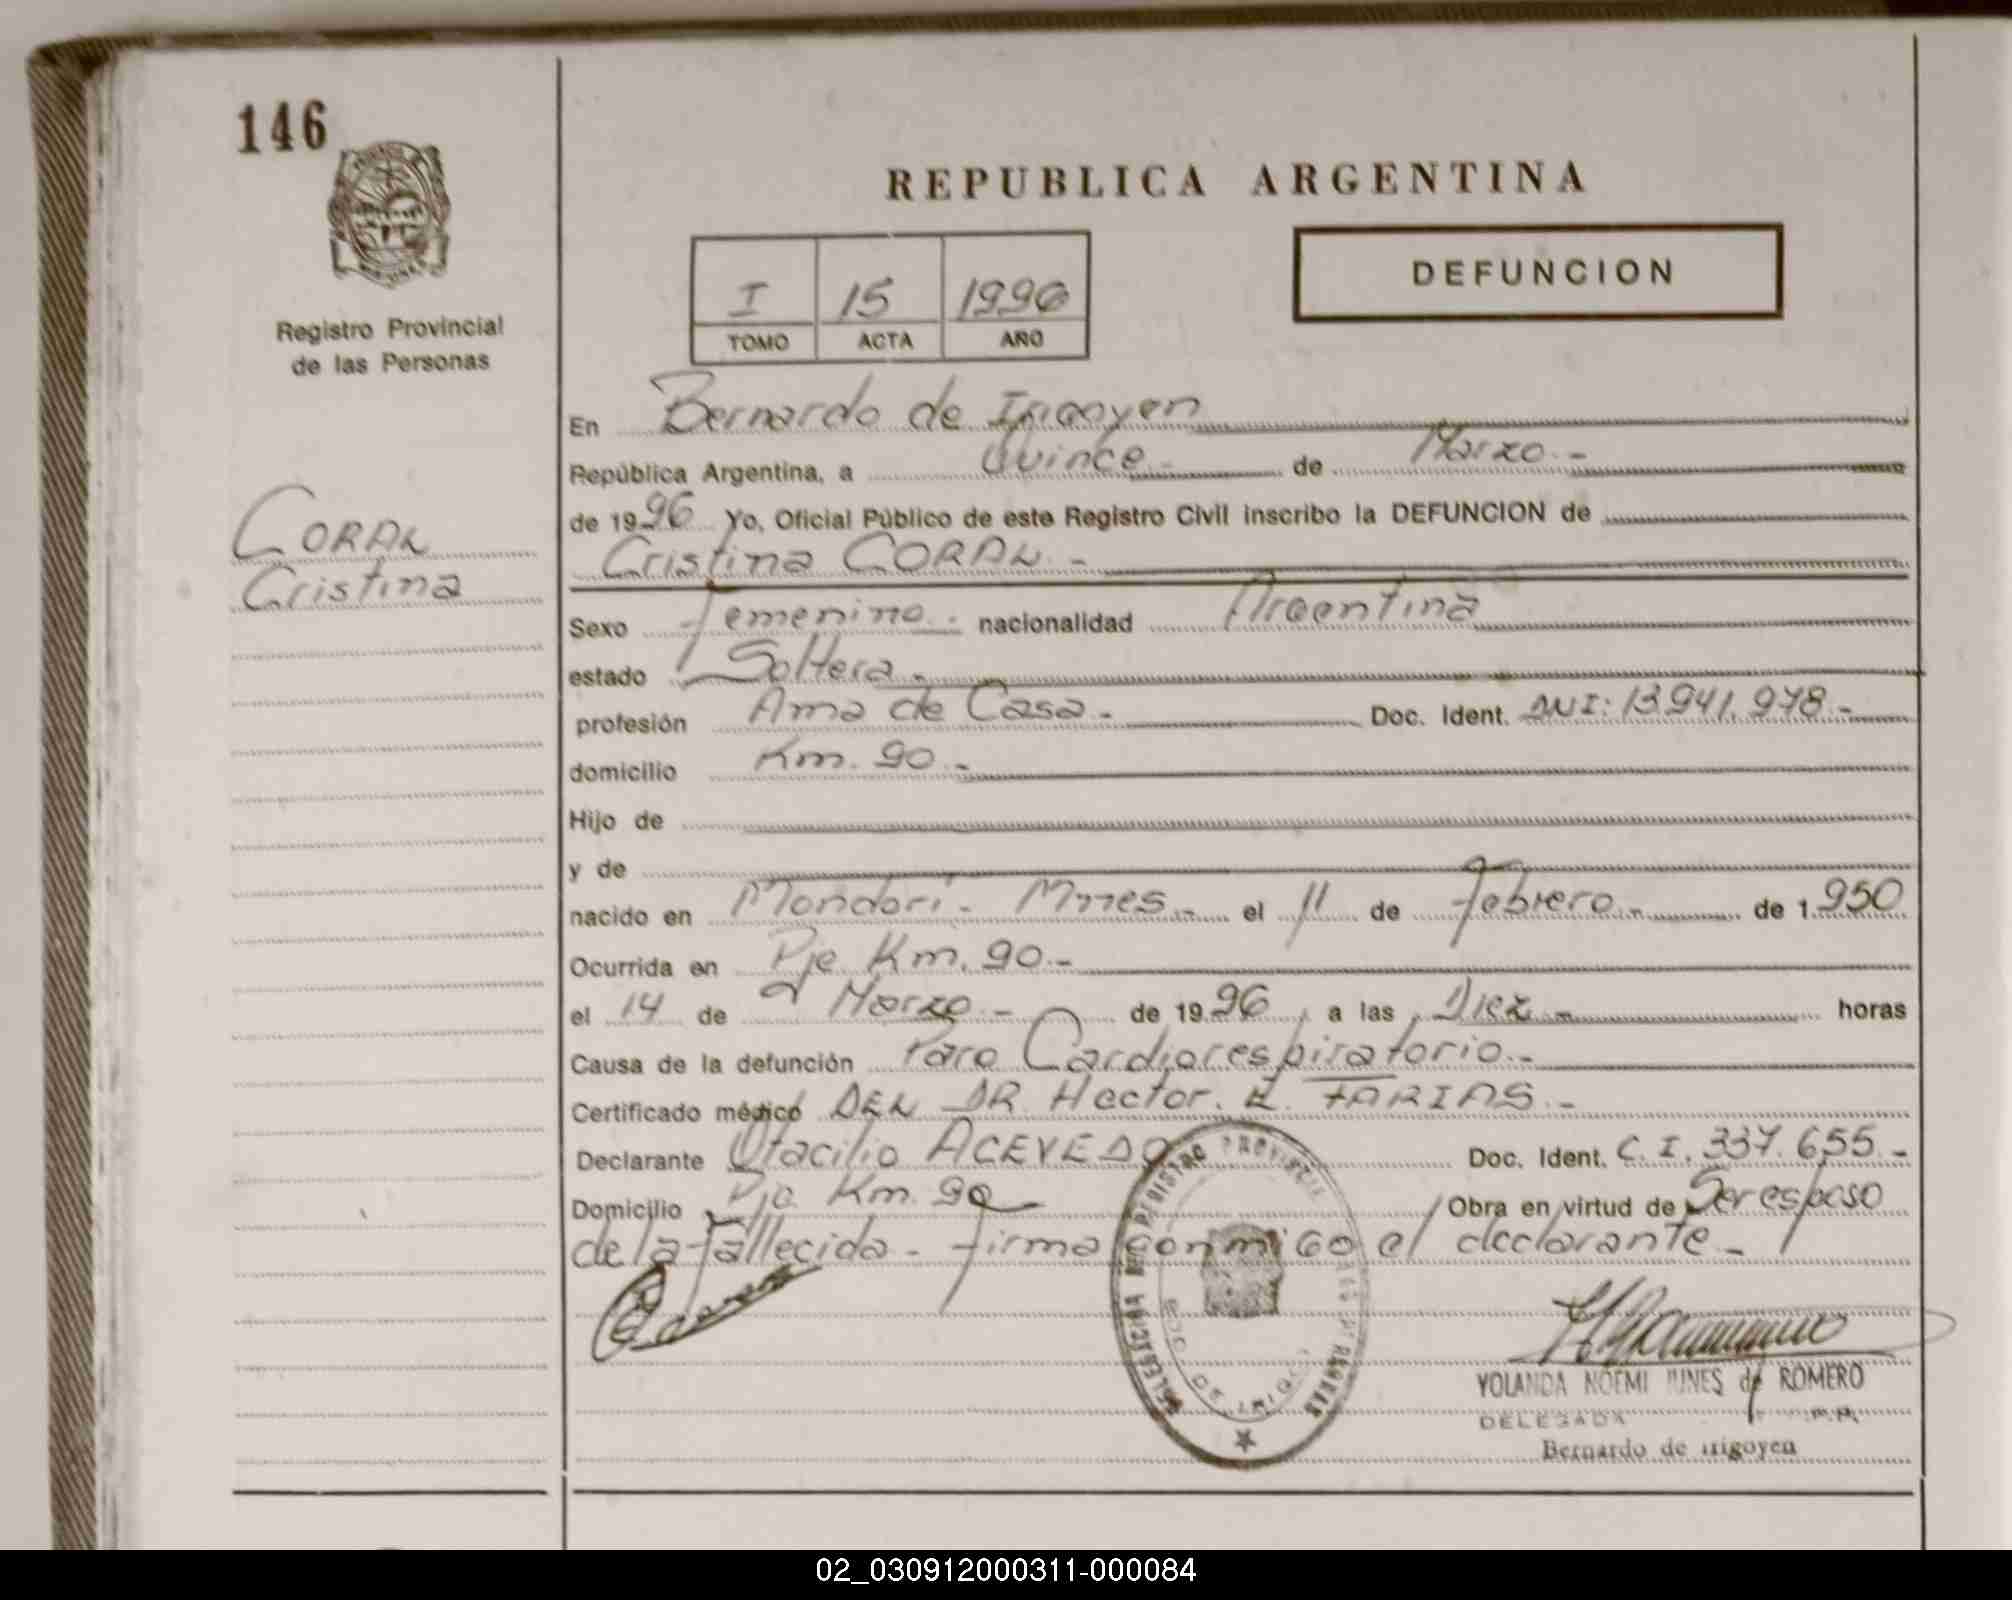 146
REPUBLICA ARGENTINA
DEFUNCION
I 15 1996
TOMO ACTA AÑO
Registro Provincial
de las Personas
CORAL
Cristina
En Bernardo de Irigoyen
República Argentina, a Quince - de Marzo. -
de 1996 Yo, Oficial Público de este Registro Civil inscribo la DEFUNCION de
Cristina CORAL. -
Sexo femenino. - nacionalidad Argentina
estado Soltera. -
profesión Ama de Casa. - Doc. Ident. DNI: 13.941.978. -
domicilio Km. 90. -
Hijo de
y de
nacido en Mondori - Mnes. - el 11 de febrero. - de 1.950
Ocurrida en Pje Km. 90. -
el 14 de Marzo. - de 1996, a las Diez. - horas
Causa de la defunción Paro Cardiorespiratorio. -
Certificado médico DEL DR. Hector. E. FARIAS. -
Declarante Otacilio ACEVEDO Doc. Ident. C.I. 337.655. -
Domicilio Pje Km. 90 Obra en virtud de Ser esposo
de la fallecida - firma conmigo el declarante. -
REGISTRO PROVINCIAL
DE IRIGOYEN
YOLANDA NOEMI de ROMERO
DELEGADA
Bernardo de Irigoyen
02_030912000311-000084